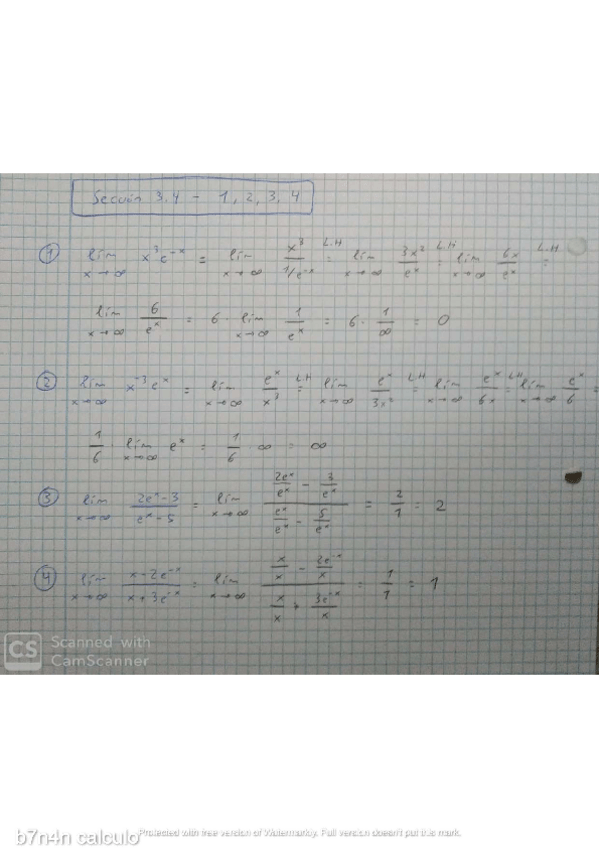 Sección 3.4 - 1, 2, 3, 4
① lim x→∞ x³e⁻ˣ = lim x→∞ x³/(1/e⁻ˣ) L.H = lim x→∞ 3x²/eˣ L.H = lim x→∞ 6x/eˣ L.H =
lim x→∞ 6/eˣ = 6 · lim x→∞ 1/eˣ = 6 · 1/∞ = 0
② lim x→∞ x⁻³eˣ = lim x→∞ eˣ/x³ L.H = lim x→∞ eˣ/3x² L.H = lim x→∞ eˣ/6x L.H = lim x→∞ eˣ/6 =
1/6 · lim x→∞ eˣ = 1/6 · ∞ = ∞
③ lim x→∞ (2eˣ-3)/(eˣ-5) = lim x→∞ (2eˣ/eˣ - 3/eˣ)/(eˣ/eˣ - 5/eˣ) = 2/1 = 2
④ lim x→∞ (x-2e⁻ˣ)/(x+3e⁻ˣ) = lim x→∞ (x/x - 2e⁻ˣ/x)/(x/x + 3e⁻ˣ/x) = 1/1 = 1
CS Scanned with
CamScanner
b7n4n calculo
Protected with free version of Watermarkly. Full version doesn't put this mark.